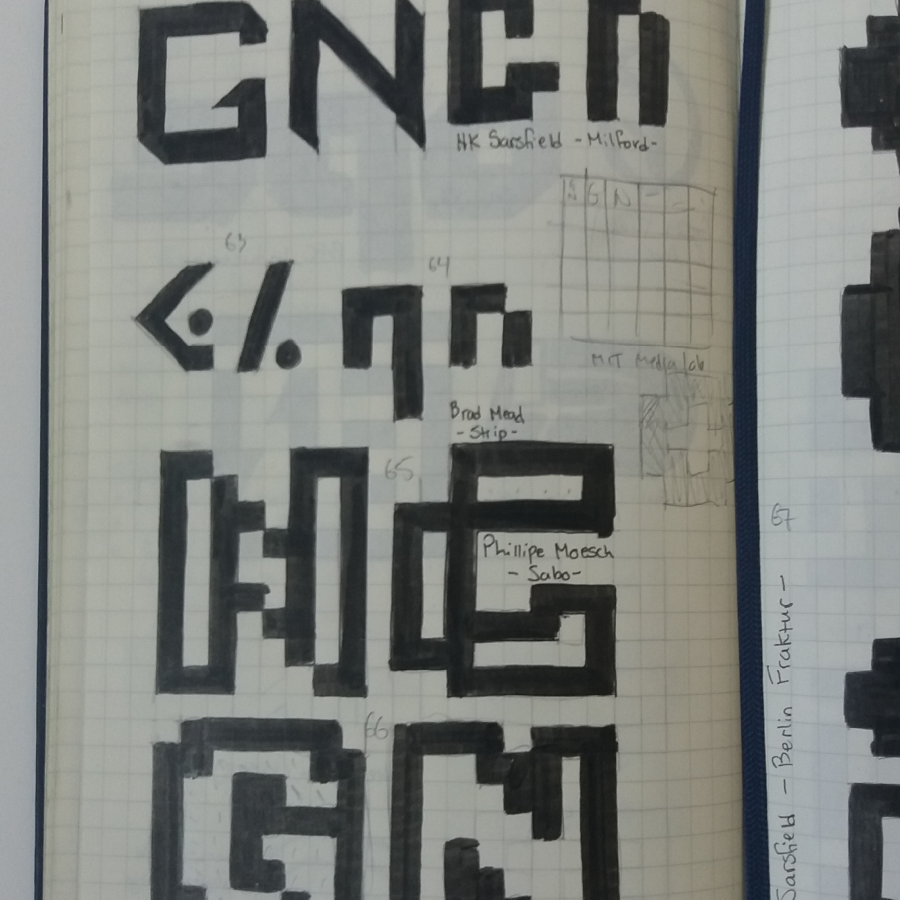 GN Gn
HK Sarsfield - Milford-
G N
63
64
MIT Media lab
Brad Mead
- Strip -
65
NG
Phillipe Moesch
- Sabo-
66
GN
67
Sarsfield - Berlin Fraktur -